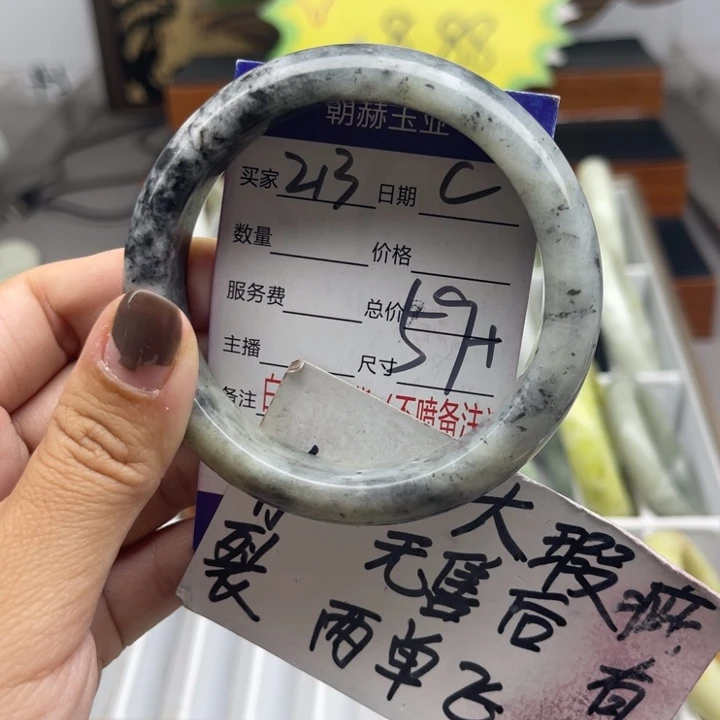 朝赫玉业
买家 213 日期
数量 价格
服务费 总价
主播 尺寸 59+
备注 (不喷备注)
大瑕疵有
裂 无售后
两单飞